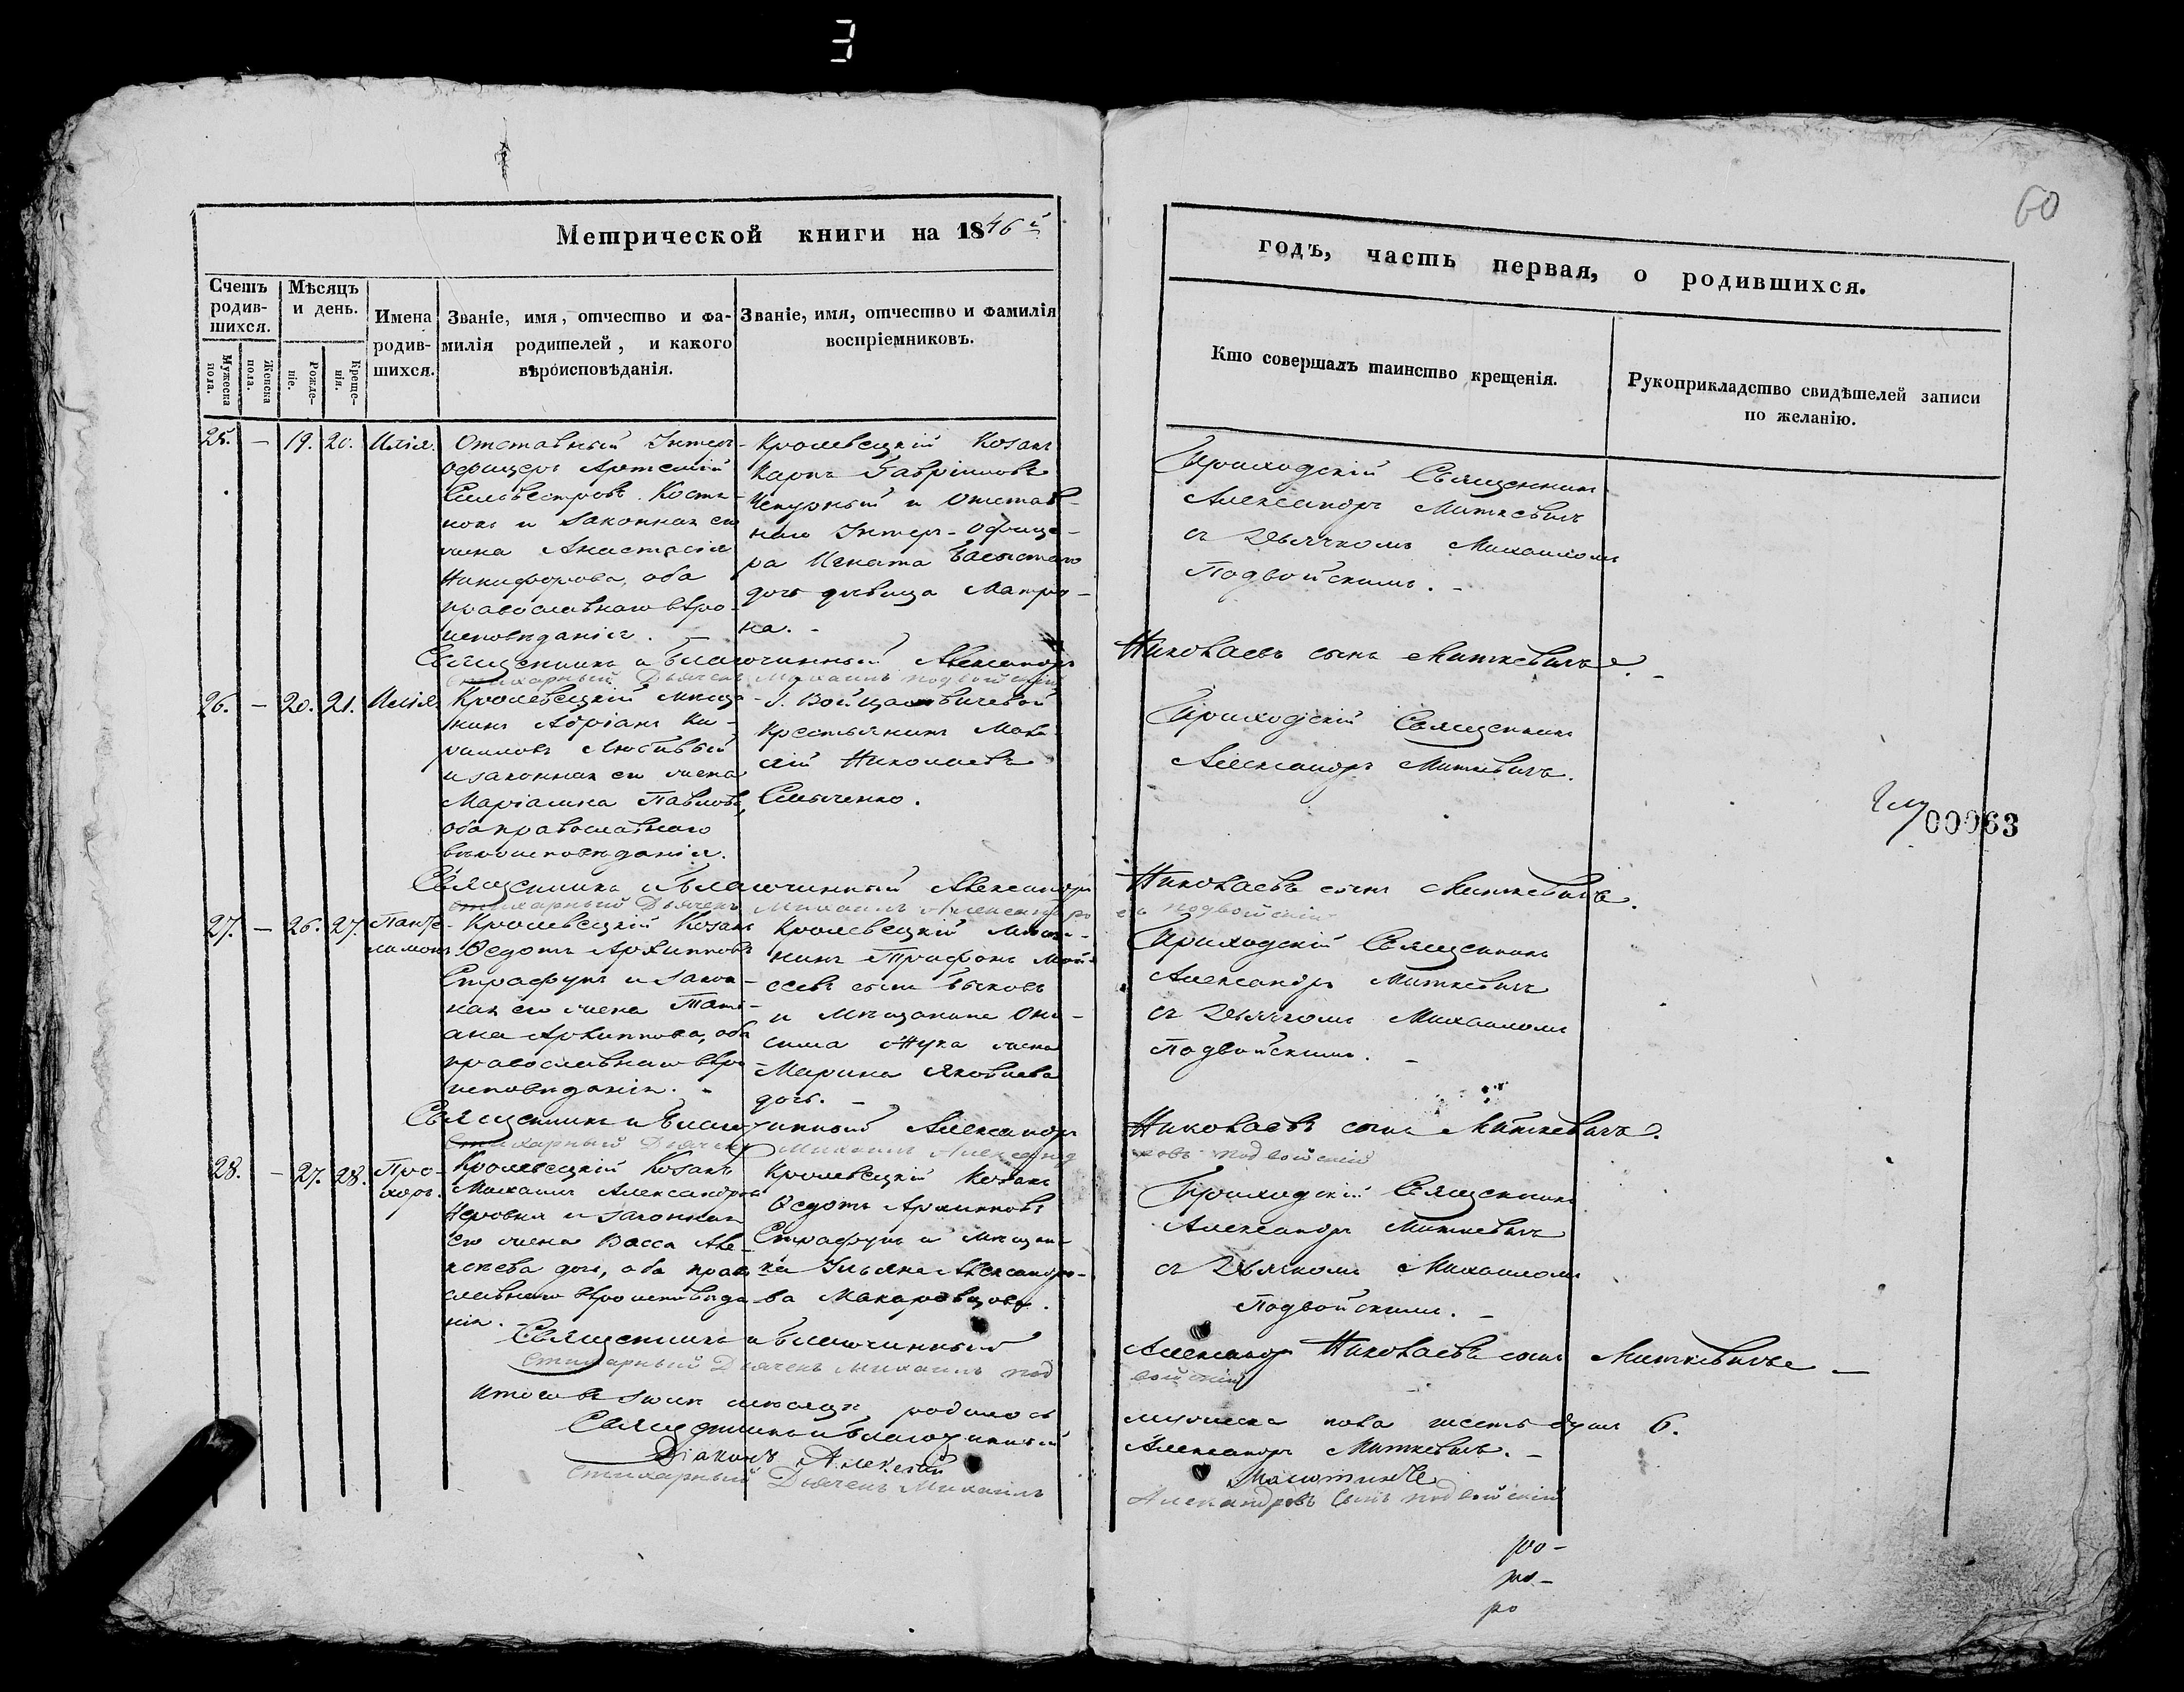 3
60
Метрической книги на 1846й
годъ, часть первая, о родившихся.
Счетъ родив-шихся.
Мужеска пола.
Женска пола.
Мѣсяцъ и день.
Рожде-ніе.
Креще-нія.
Имена родив-шихся.
Званіе, имя, отчество и фа-
милія родителей, и какого
вѣроисповѣданія.
Званіе, имя, отчество и фамилія
воспріемниковъ.
Кто совершалъ таинство крещенія.
Рукоприкладство свидѣтелей записи
по желанію.
25. – 19. 20. Илія.
Отставный Унтеръ-
офицеръ Артемій
Сильвестровъ
и законная его
жена Анастасія
Никифорова, оба
православнаго вѣро-
исповѣданія. –
Кролевецкій Козакъ
Карпъ Гавріиловъ
и Отстав-
наго Унтеръ-Офице-
ра Игната
дочь дѣвица Матро-
на. –
Приходскій Священникъ
Александръ Миткевичъ
съ Дьячкомъ Михаиломъ
Подвойскимъ. –
Священникъ и Благочинный Александръ
Николаевъ сынъ Миткевичъ. –
Стихарный Дьячекъ Михаилъ Подвойскій
26. – 20. 21. Илія.
Кролевецкій мѣща-
нинъ Адріанъ Ки-
рилловъ
и законная его жена
Маріамна Павлова,
оба православнаго
вѣроисповѣданія.
Г. Войцаховичевой
крестьянинъ
Николаевъ
Приходскій Священникъ
Александръ Миткевичъ.
00063
Священникъ и Благочинный Александръ
Николаевъ сынъ Миткевичъ.
Стихарный Дьячекъ Михаилъ Александро
въ Подвойскій
27. – 26. 27. Панте-
лимонъ
Кролевецкій Козакъ
Ѳедотъ Архипповъ
Страфунъ и закон-
ная его жена Тати-
ана Архиппова, оба
православнаго вѣро-
исповѣданія. –
Кролевецкій Мѣща-
нинъ Трифонъ Мой-
сеевъ сынъ Бычковъ
и Мѣщанина Они-
сима Жука жена
Марина Яковлева
дочь. –
Приходскій Священникъ
Александръ Миткевичъ
съ Дьячкомъ Михаиломъ
Подвойскимъ. –
Священникъ и Благочинный Александръ
Николаевъ сынъ Миткевичъ.
Стихарный Дьячекъ Михаилъ Александ
ровъ Подвойскій
28. – 27. 28. Про-
хоръ.
Кролевецкій Козакъ
Михаилъ Александровъ
и законная
его жена Васса Але-
ксѣева дочь, оба право
славнаго вѣроисповѣда
нія. –
Кролевецкій Козакъ
Ѳедотъ Архипповъ
Страфунъ и Мѣщан-
ка Ульяна Александро-
ва
Приходскій Священникъ
Александръ Миткевичъ
съ Дьячкомъ Михаиломъ
Подвойскимъ. –
Священникъ и Благочинный
Александръ Николаевъ сынъ Миткевичъ –
Стихарный Дьячекъ Михаилъ Под
войскій
Итого въ Іюлѣ мѣсяцѣ родилось
мужеска пола шесть душъ 6.
Священникъ и Благочинный
Александръ Миткевичъ. –
Діаконъ Алексій
Стихарный Дьячекъ Михаилъ
Александровъ сынъ Подвойскій